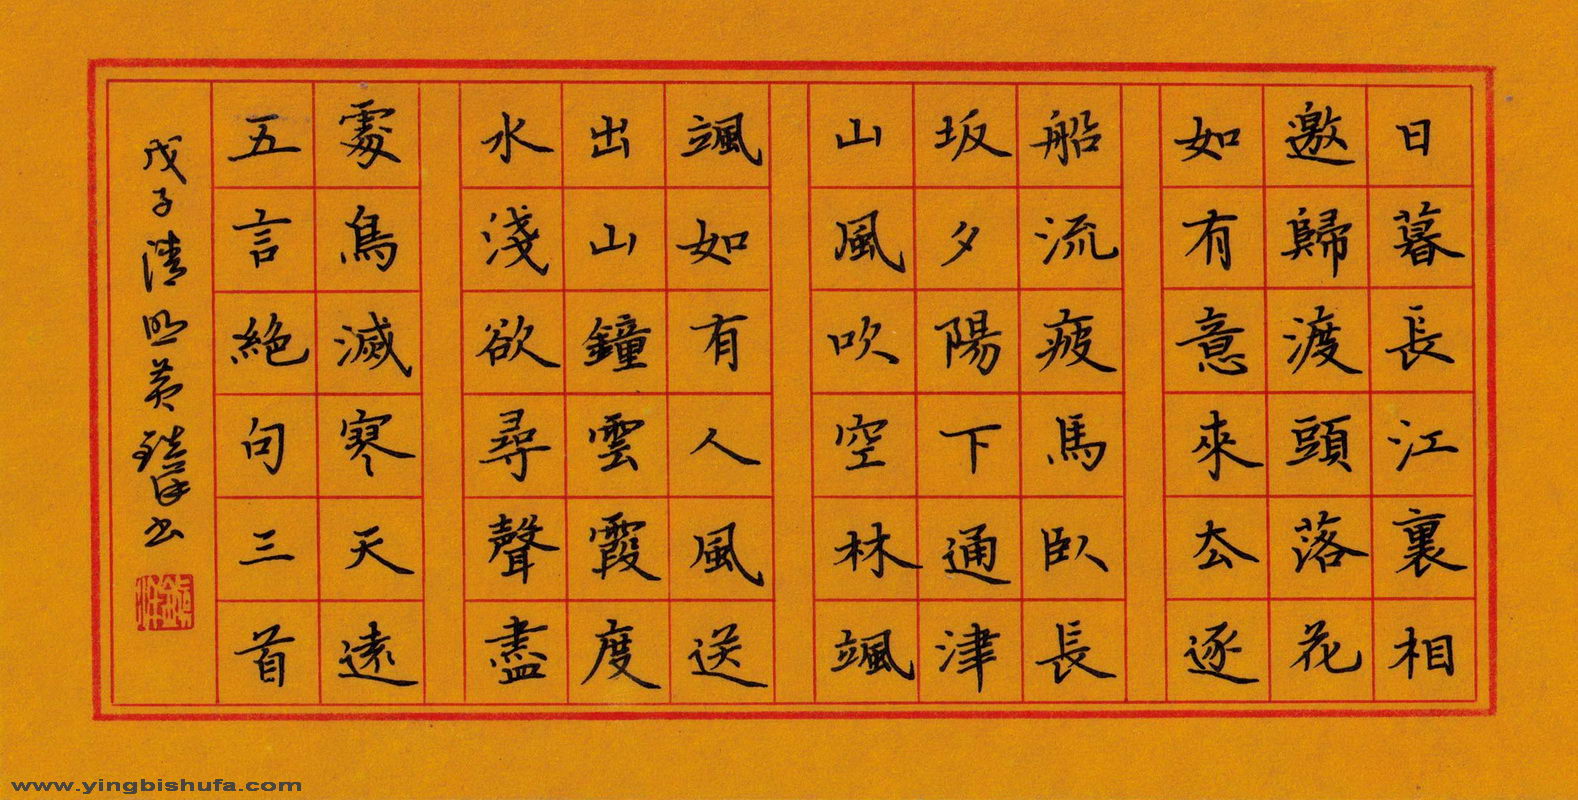 日暮長江裏相
邀歸渡頭落花
如有意來去逐
船流疲馬臥長
坂夕陽下通津
山風吹空林颯
颯如有人風送
出山鐘雲霞度
水淺欲尋聲盡
處鳥滅寒天遠
五言絶句三首
戊子清明黄书
www.yingbishufa.com